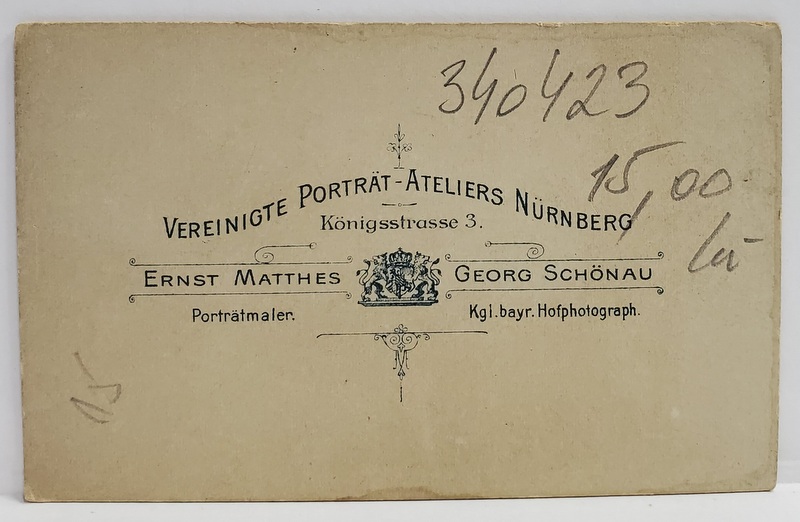 340423
15,00
VEREINIGTE PORTRÄT-ATELIERS NÜRNBERG
Königsstrasse 3.
ERNST MATTHES
GEORG SCHÖNAU
Porträtmaler.
Kgl. bayr. Hofphotograph.
15